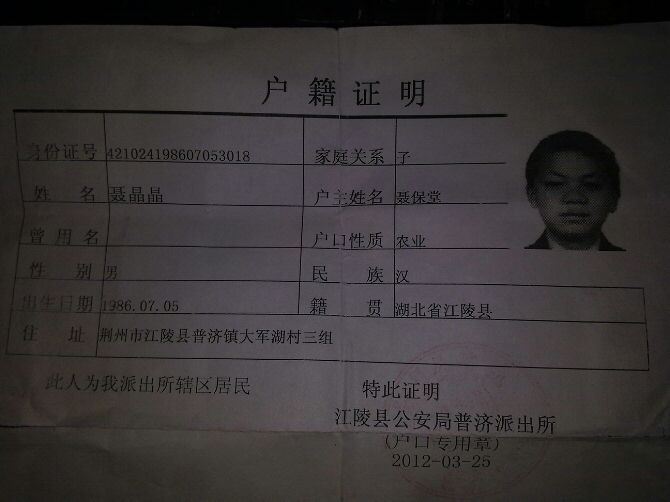 户籍证明
身份证号 421024198607053018 家庭关系 子
姓名 聂晶晶 户主姓名 聂保堂
曾用名 户口性质 农业
性别 男 民族 汉
出生日期 1986.07.05 籍贯 湖北省江陵县
住址 荆州市江陵县普济镇大军湖村三组
此人为我派出所辖区居民 特此证明
江陵县公安局普济派出所
(户口专用章)
2012-03-25